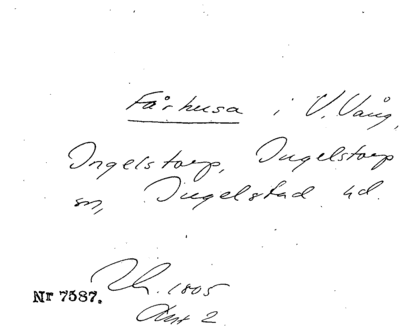 Fårhusa i V. Vång,
Ingelstorp, Ingelstorp
sn, Ingelstad hd.
Nr 7587.
1805
Akt 2.